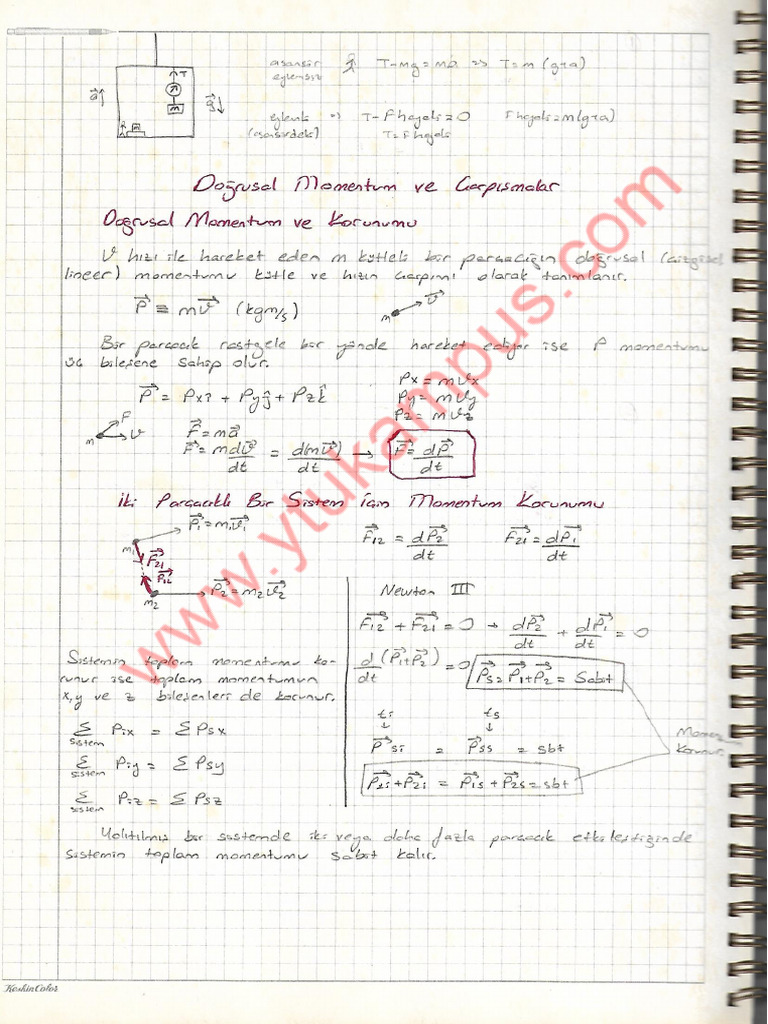 asansör eylemsiz T-mg=ma => T=m(g+a)
T
a
g
m
eylemli => T-Fhayali=0 Fhayali=m(g+a)
(asansördeki) T=Fhayali
Doğrusal Momentum ve Çarpışmalar
Doğrusal Momentum ve Korunumu
V hızı ile hareket eden m kütleli bir parçacığın doğrusal (çizgisel
lineer) momentumu kütle ve hızın çarpımı olarak tanımlanır.
P ≡ mv (kgm/s)
m v
Bir parçacık rastgele bir yönde hareket ediyor ise P momentumu
üç bileşene sahip olur.
P = Pxî + Pyĵ + Pzk̂
Px = mvx
Py = mvy
Pz = mvz
m F v
F = ma
F = mdv/dt = d(mv)/dt → F = dP/dt
İki Parçacıklı Bir Sistem İçin Momentum Korunumu
P1 = m1v1
m1 F21
F12
m2
P2 = m2v2
F12 = dP2/dt F21 = dP1/dt
Newton III
F12 + F21 = 0 → dP2/dt + dP1/dt = 0
d/dt (P1+P2) = 0 Ps = P1+P2 = Sabit
ti ts
↓ ↓
Psi = Pss = sbt
P1i+P2i = P1s+P2s = sbt
Momen.
Korunur.
Sistemin toplam momentumu ko-
runur ise toplam momentumun
x,y ve z bileşenleri de korunur.
Σ sistem Pix = Σ Psx
Σ sistem Piy = Σ Psy
Σ sistem Piz = Σ Psz
Yalıtılmış bir sistemde iki veya daha fazla parçacık etkileştiğinde
sistemin toplam momentumu sabit kalır.
www.ytukampus.com
KeskinColor